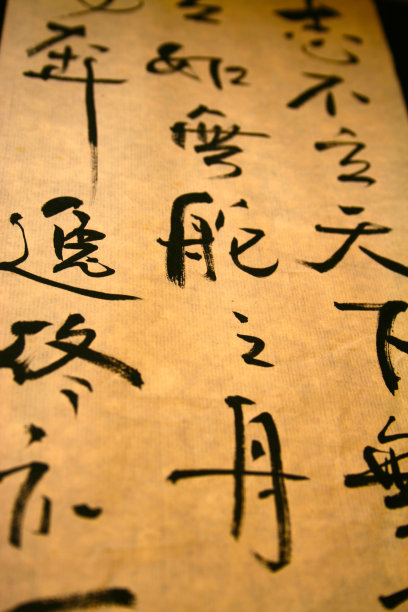 志不立天下無
立如無舵之舟
奔逸終亦